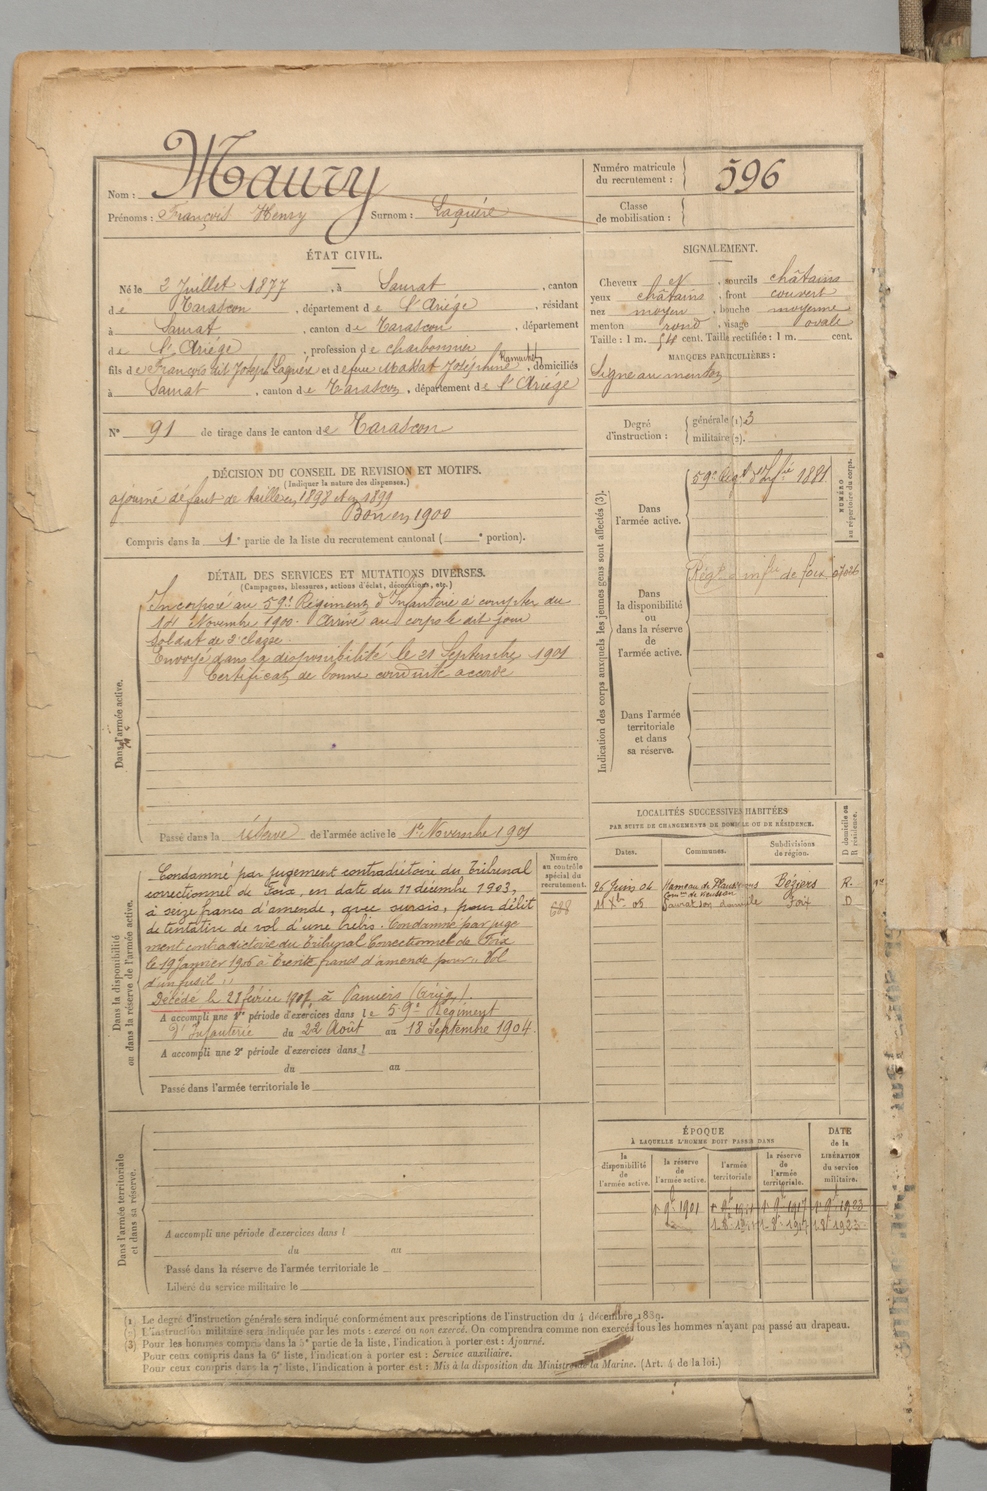 Nom : Maury
Prénoms : François Henry Surnom : Laguère
Numéro matricule
du recrutement : 596
Classe
de mobilisation :
ÉTAT CIVIL.
Né le 2 Juillet 1877, à Saurat, canton
de Tarascon, département de l'Ariége, résidant
à Saurat, canton de Tarascon, département
de l'Ariége, profession de charbonnier
fils de François dit Joseph Laguère et de feue Massat Joséphine, domiciliés
à Saurat, canton de Tarascon, département de l'Ariége
N° 91 de tirage dans le canton de Tarascon
SIGNALEMENT.
Cheveux et sourcils châtains
yeux châtains, front couvert
nez moyen, bouche moyenne
menton rond, visage ovale
Taille : 1 m. 54 cent. Taille rectifiée : 1 m. cent.
MARQUES PARTICULIÈRES :
Signe au menton
Degré
d'instruction : générale (1) 3
militaire (2).
DÉCISION DU CONSEIL DE REVISION ET MOTIFS.
(Indiquer la nature des dispenses.)
ajourné défaut de taille en 1898 et en 1899
Bon en 1900
Compris dans la 1e partie de la liste du recrutement cantonal ( e portion).
DÉTAIL DES SERVICES ET MUTATIONS DIVERSES.
(Campagnes, blessures, actions d'éclat, décorations, etc.)
Dans l'armée active.
Incorporé au 59e Régiment d'Infanterie à compter du
14 Novembre 1900. Arrivé au corps le dit jour
soldat de 2e classe.
Envoyé dans la disponibilité le 21 Septembre 1901
Certificat de bonne conduite accordé
Passé dans la réserve de l'armée active le 1er Novembre 1901
Indication des corps auxquels les jeunes gens sont affectés (3).
NUMÉRO
au répertoire du corps.
Dans
l'armée active.
59e Régt d'Infie 1881
Dans
la disponibilité
ou
dans la réserve
de
l'armée active.
Régt d'infie de Foix
Dans l'armée
territoriale
et dans
sa réserve.
Dans la disponibilité
ou dans la réserve de l'armée active.
Numéro
au contrôle
spécial du
recrutement.
Condamné par jugement contradictoire du Tribunal
correctionnel de Foix, en date du 11 décembre 1903,
à seize francs d'amende, avec sursis, pour délit
de tentative de vol d'une brebis. Condamné par juge
ment contradictoire du Tribunal Correctionnel de Foix
le 19 Janvier 1906 à Trente francs d'amende pour "Vol
d'un fusil"
Décédé le 28 février à Pamiers (Ariège)
A accompli une 1re période d'exercices dans le 59e Régiment
d'Infanterie du 22 Août au 18 Septembre 1904.
A accompli une 2e période d'exercices dans l
du au
Passé dans l'armée territoriale le
LOCALITÉS SUCCESSIVES HABITÉES
PAR SUITE DE CHANGEMENTS DE DOMICILE OU DE RÉSIDENCE.
Dates. Communes. Subdivisions
de région. D domicile ou
R résidence.
26 Juin 04 Hameau de Béziers R.
11 Xbre 05 Saurat Foix D
ÉPOQUE
À LAQUELLE L'HOMME DOIT PASSER DANS
la
disponibilité
de
l'armée active.
la réserve
de
l'armée active.
l'armée
territoriale.
la réserve
de
l'armée
territoriale.
DATE
de la
LIBÉRATION
du service
militaire.
1er 9bre 1901 1er 9bre 1911 1er 9bre 1917 1er 9bre 1923
Dans l'armée territoriale
et dans sa réserve.
A accompli une période d'exercices dans l
du au
Passé dans la réserve de l'armée territoriale le
Libéré du service militaire le
(1) Le degré d'instruction générale sera indiqué conformément aux prescriptions de l'instruction du 4 décembre 1889.
(2) L'instruction militaire sera indiquée par les mots : exercé ou non exercé. On comprendra comme non exercés tous les hommes n'ayant pas passé au drapeau.
(3) Pour les hommes compris dans la 5e partie de la liste, l'indication à porter est : Ajourné.
Pour ceux compris dans la 6e liste, l'indication à porter est : Service auxiliaire.
Pour ceux compris dans la 7e liste, l'indication à porter est : Mis à la disposition du Ministre de la Marine. (Art. 4 de la loi.)